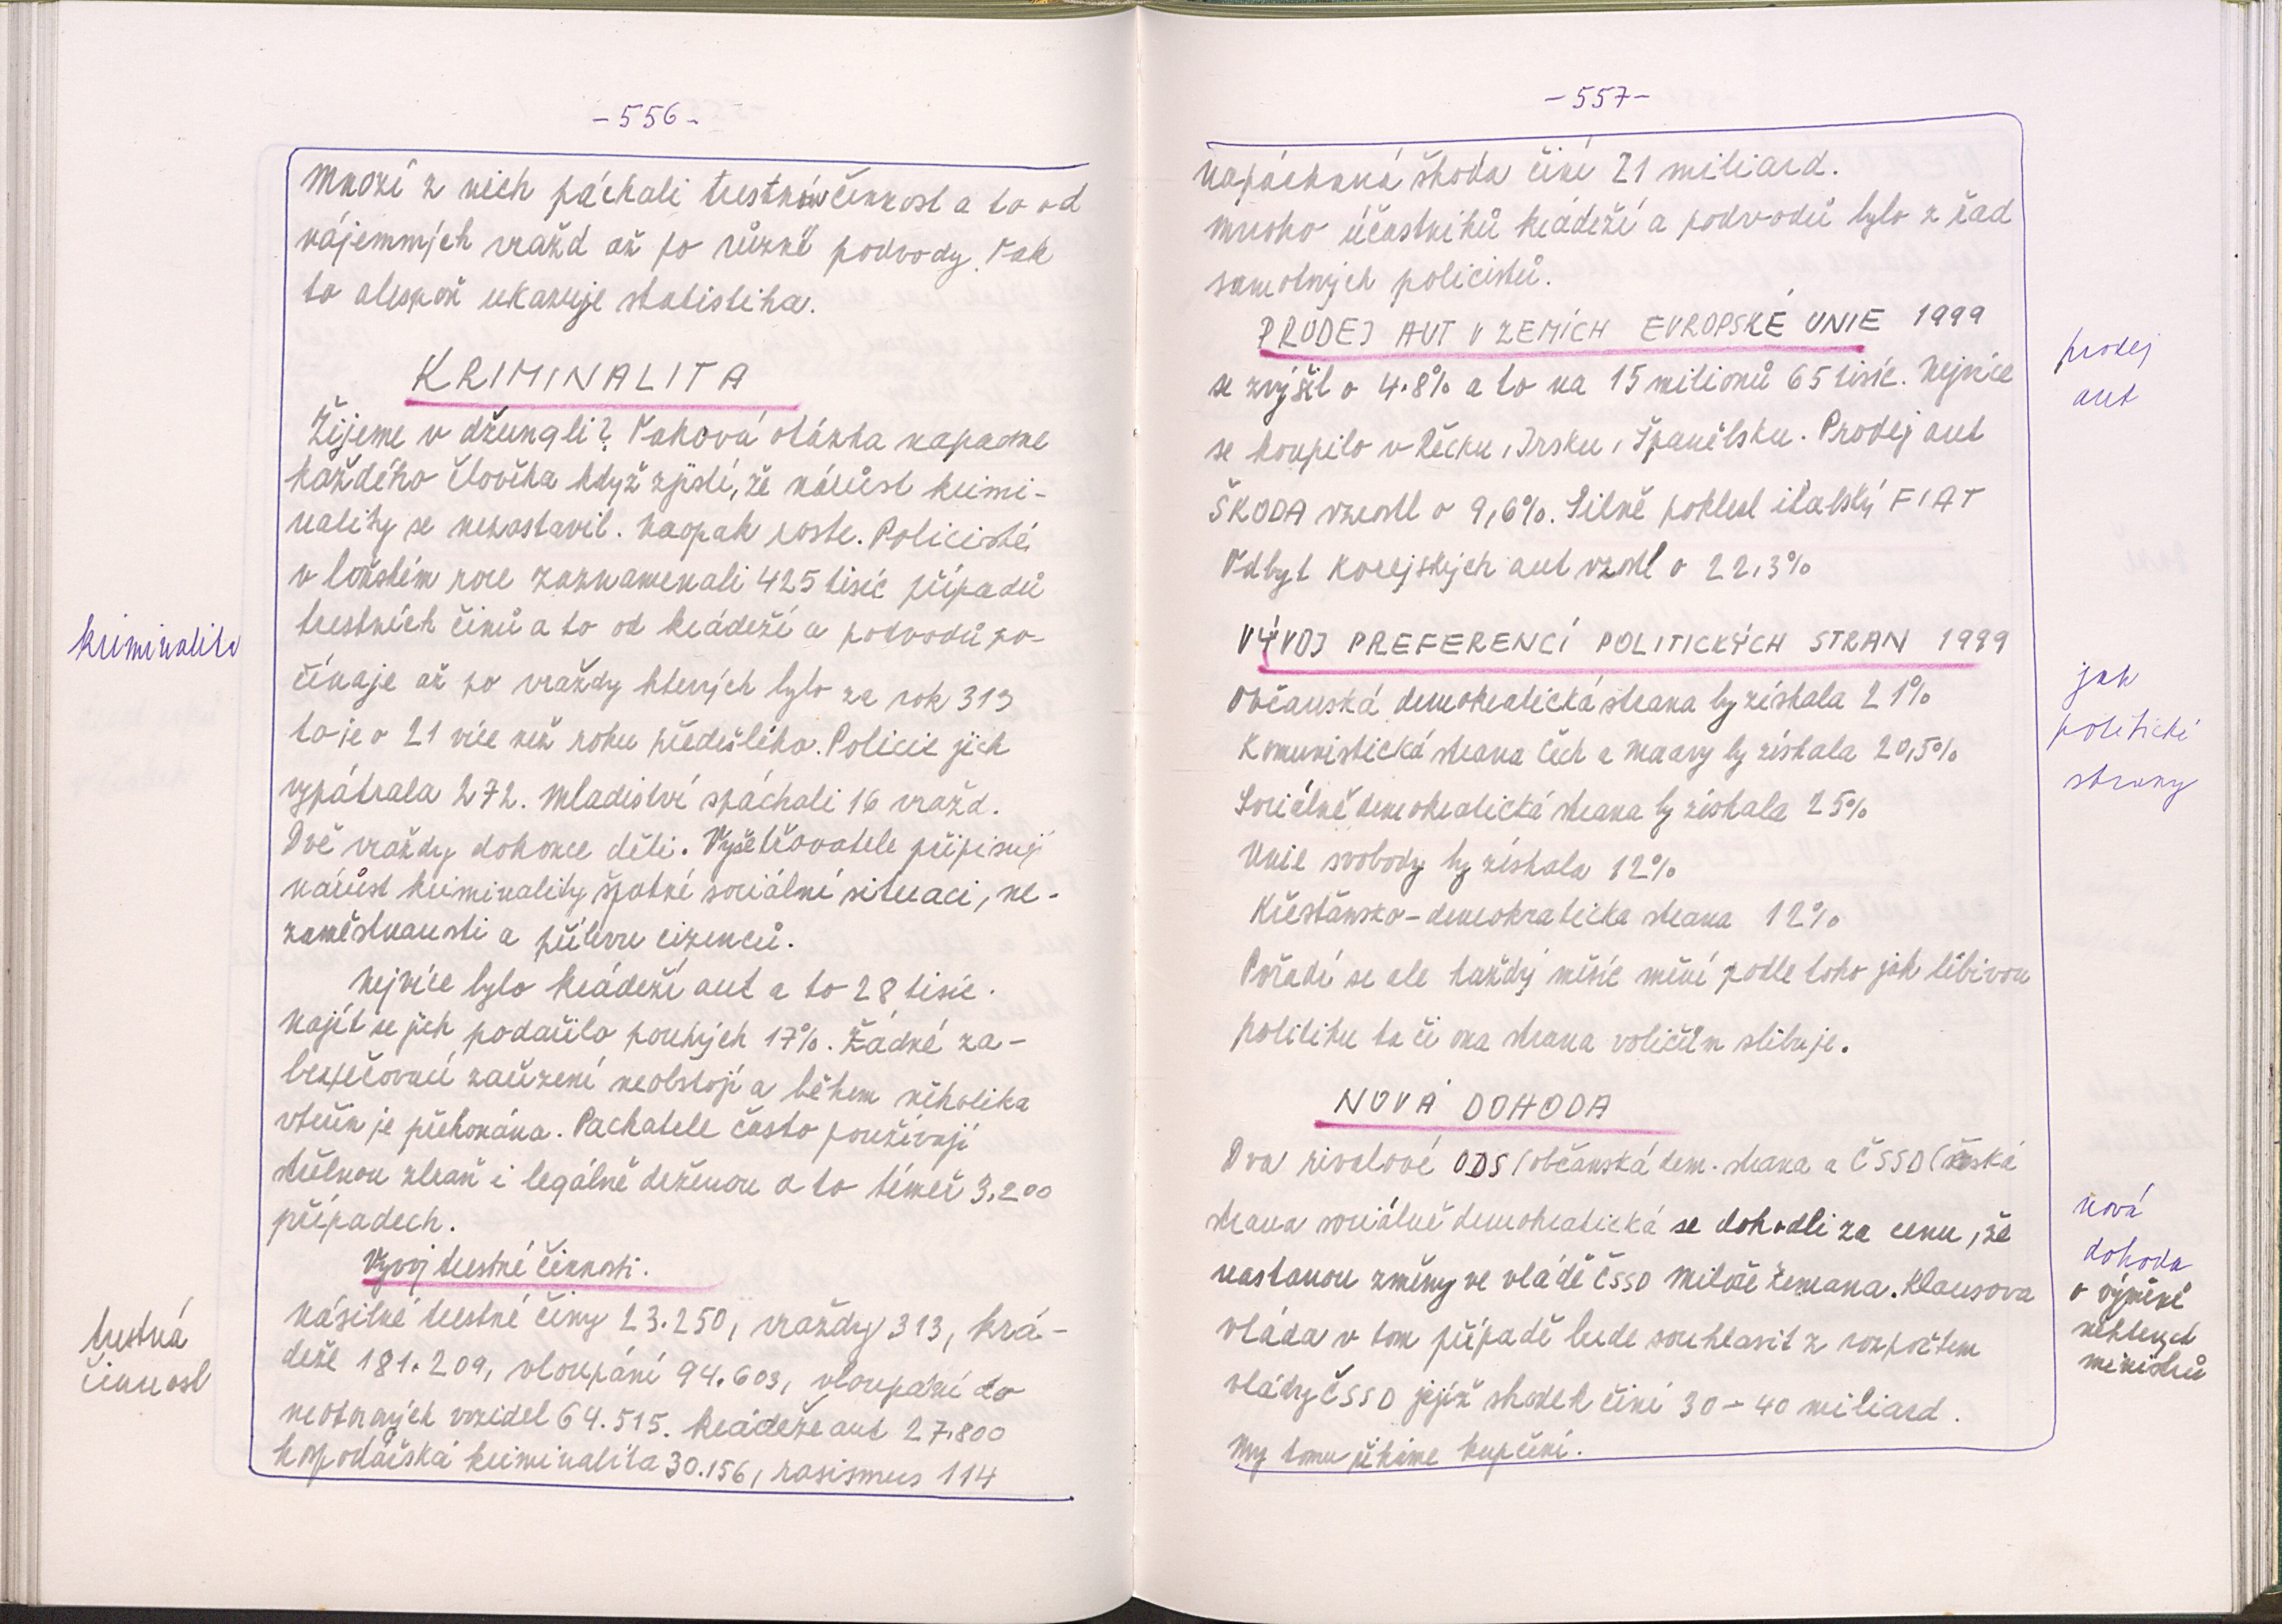 -556-
Mnozí z nich páchali trestnou činnost a to od
nájemných vražd až po různé podvody. Tak
to alespoň ukazuje statistika.
KRIMINALITA
Žijeme v džungli? Taková otázka napadne
každého člověka když zjistí, že nárůst krimi-
nality se nezastavil. Naopak roste. Policisté
v loňském roce zaznamenali 425 tisíc případů
trestních činů a to od krádeží a podvodů po-
čínaje až po vraždy kterých bylo za rok 313
to je o 21 více než roku předešlého. Policie jich
vypátrala 272. Mladiství spáchali 16 vražd.
Dvě vraždy dokonce děti. Vyšetřovatele připisují
nárůst kriminality špatné sociální situaci, ne-
zaměstnanosti a přílivu cizenců.
Nejvíce bylo krádeží aut a to 28 tisíc.
Najít se jich podařilo pouhých 17%. Žádné za-
bezpečovací zařízení neobstojí a během několika
vteřin je překonána. Pachatele často používají
střelnou zbraň i legálně drženou a to téměř 3.200
případech.
Vývoj trestné činnosti.
Násilné trestné činy 23.250, vraždy 313, krá-
deže 181.209, vloupání 94.603, vloupání do
motorových vozidel 64.515. Krádeže aut 27.800
hospodářská kriminalita 30.156, rasismus 114
kriminalita
trestná
činnost
-557-
Napáchaná škoda činí 21 miliard.
Mnoho účastníků krádeží a podvodů bylo z řad
samotných policistů.
PRODEJ AUT V ZEMÍCH EVROPSKÉ UNIE 1999
se zvýšil o 4.8% a to na 15 milionů 65 tisíc. Nejvíce
se koupilo v Řecku, Irsku, Španělsku. Prodej aut
ŠKODA vzrostl o 9,6%. Silně poklesl italský FIAT
Odbyt korejských aut vzrostl o 22,3%
VÝVOJ PREFERENCÍ POLITICKÝCH STRAN 1999
Občanská demokratická strana by získala 21%
Komunistická strana Čech a Moravy by získala 20,5%
Sociálně demokratická strana by získala 25%
Unie svobody by získala 12%
Křesťansko-demokratická strana 12%
Pořadí se ale každý měsíc mění podle toho jak líbivou
politiku ta či ona strana voličům slibuje.
NOVÁ DOHODA
Dva rivalové ODS (občanská dem. strana a ČSSD (česká
strana sociálně demokratická se dohodli za cenu, že
nastanou změny ve vládě ČSSD Miloše Zemana. Klausova
vláda v tom případě bude souhlasit z rozpočtem
vlády ČSSD jejíž schodek činí 30-40 miliard.
My tomu říkáme kupčení.
prodej
aut
jak
politické
strany
nová
dohoda
o výměně
některých
ministrů